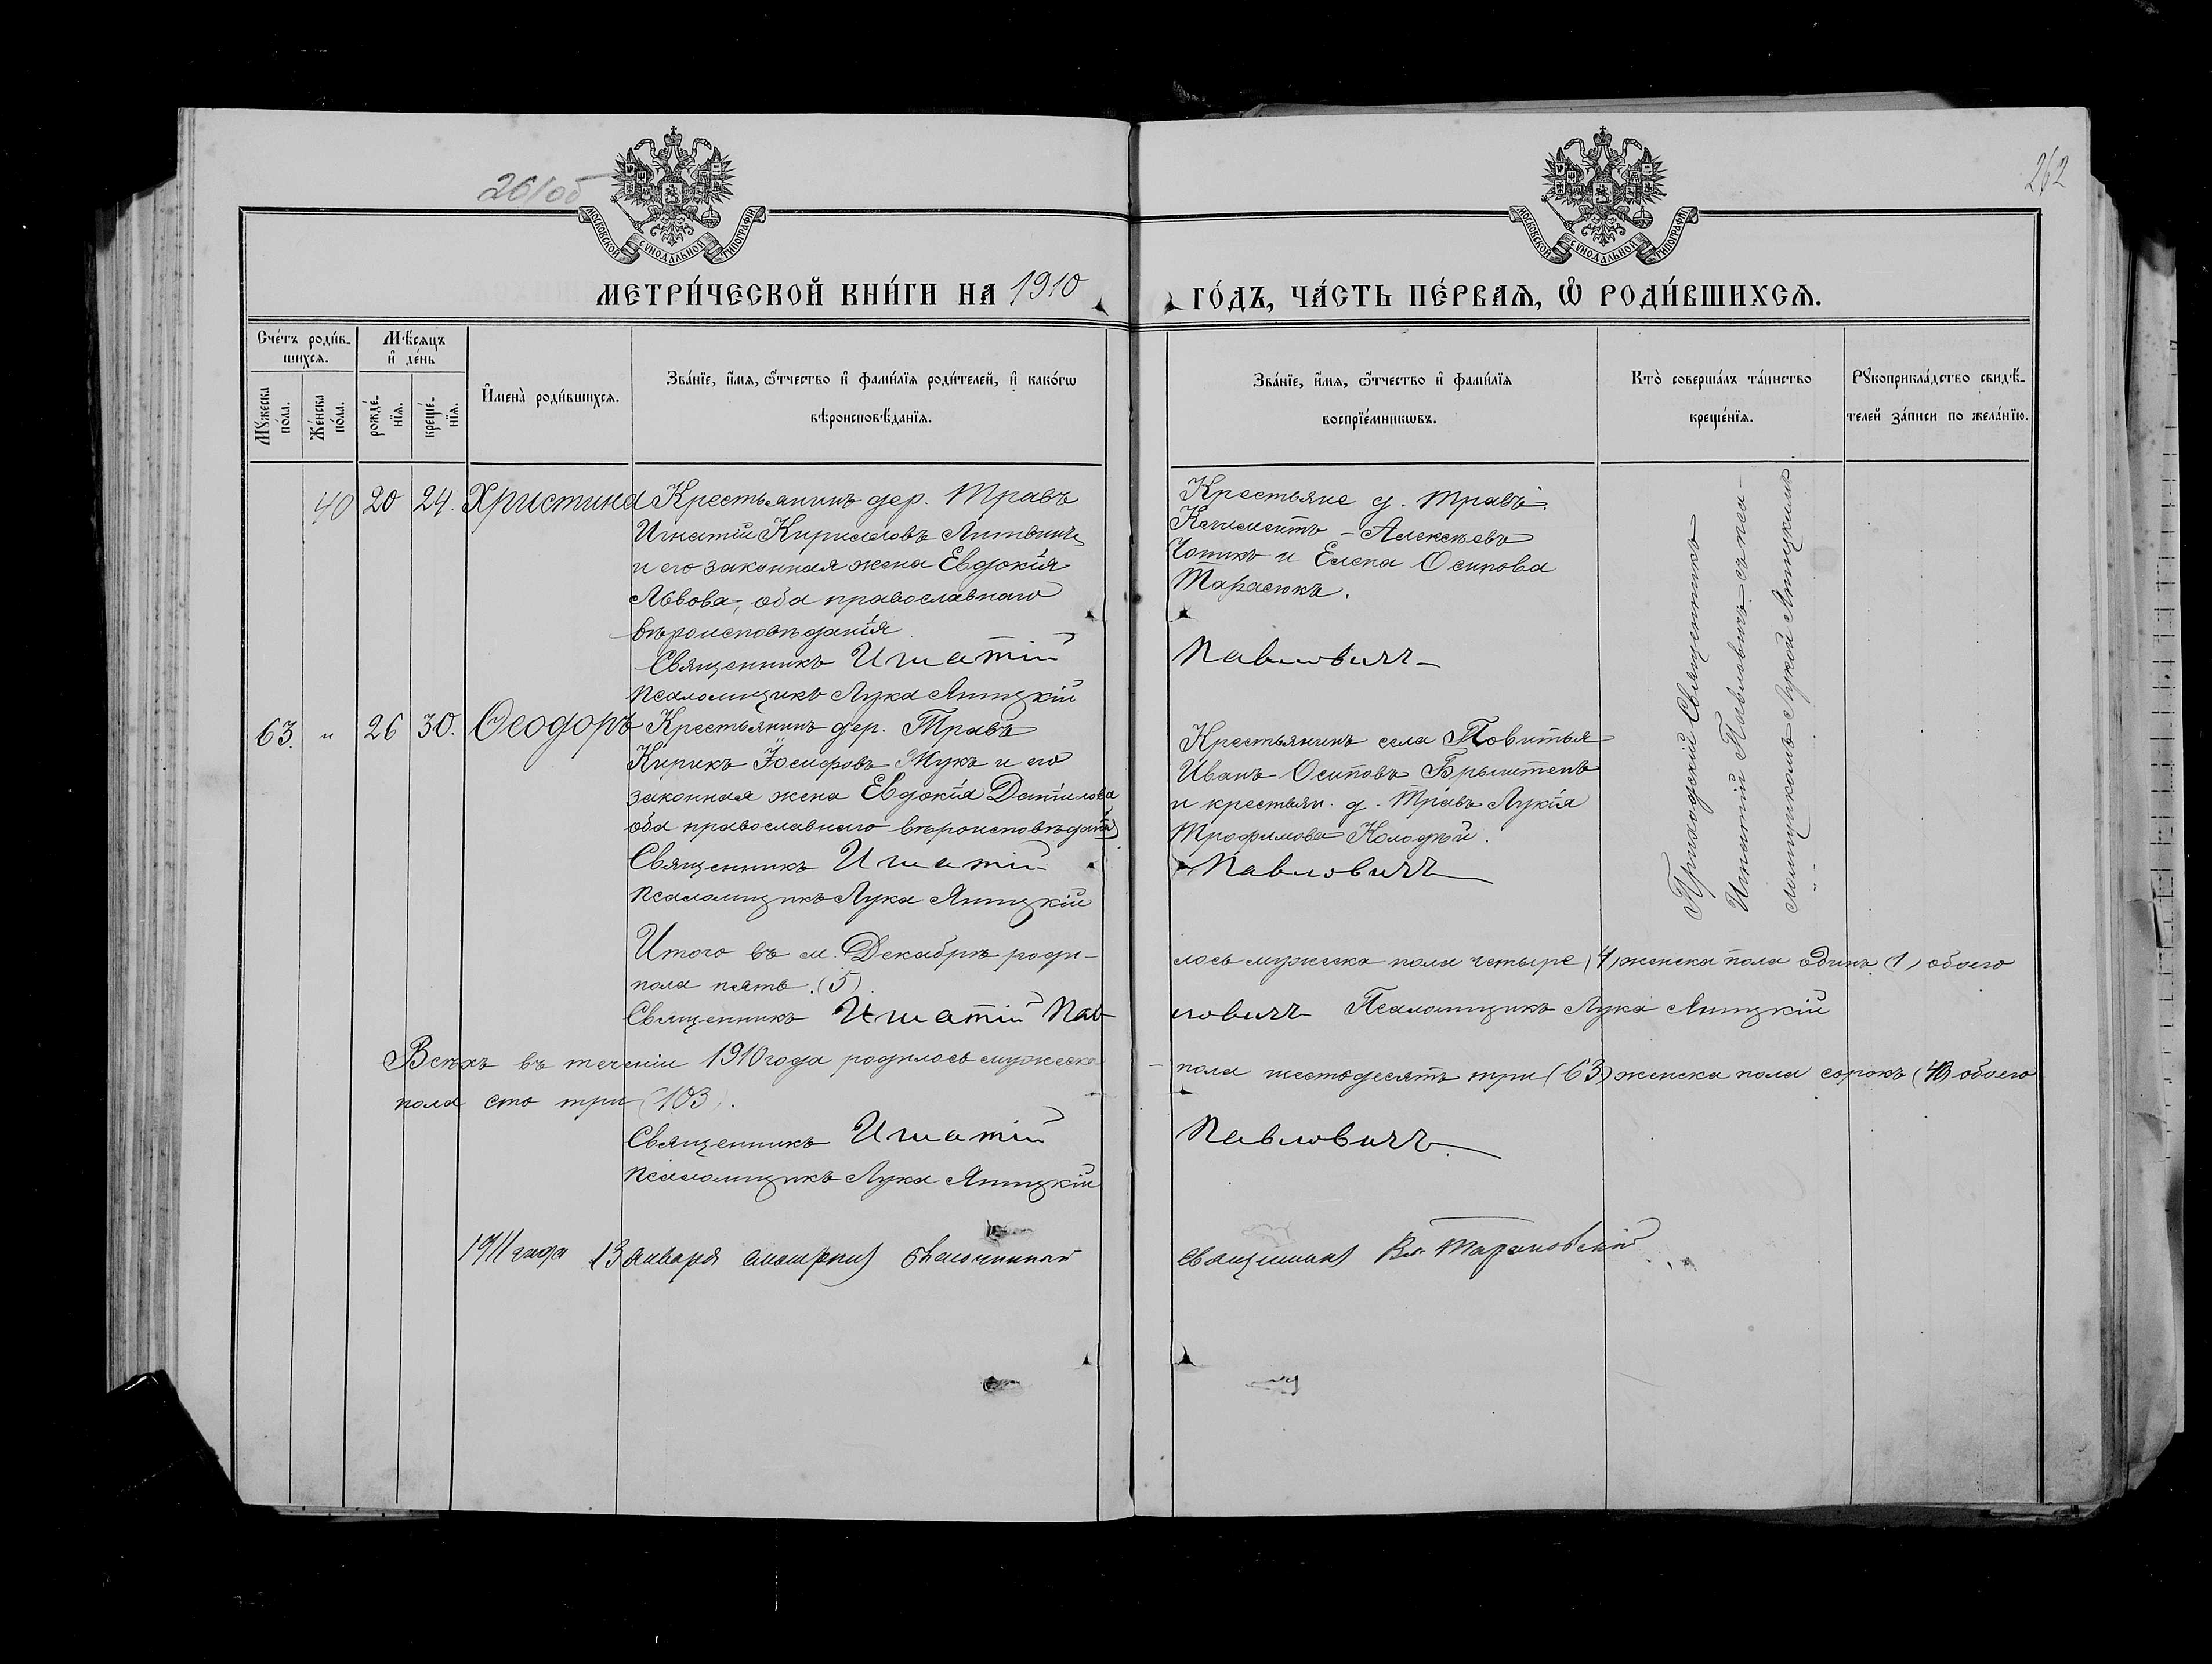 261об
262
МОСКОВСКОЙ СУНОДАЛЬНОЙ ТИПОГРАФІИ
МОСКОВСКОЙ СУНОДАЛЬНОЙ ТИПОГРАФІИ
МЕТРИ́ЧЕСКОЙ КНИ́ГИ НА 1910 ГО́ДЪ, ЧА́СТЬ ПЕ́РВАѦ, Ѽ РОДИ́ВШИХСѦ.
Сче́тъ роди́в-
шихсѧ.
Мꙋ́жеска
по́ла.
Же́нска
по́ла.
Мѣ́сѧцъ
и҆ де́нь
рожде́-
нїѧ.
креще́-
нїѧ.
И҆мена̀ роди́вшихсѧ.
Зва́нїе, и҆́мѧ, ѻ҆́тчество и҆ фами́лїѧ роди́телей, и҆ како́гѡ
вѣроисповѣ́данїѧ.
Зва́нїе, и҆́мѧ, ѻ҆́тчество и҆ фами́лїѧ
воспрїе́мникѡвъ.
Кто̀ соверша́лъ та́инство
креще́нїѧ.
Рꙋкоприкла́дство свидѣ́-
телей за́писи по жела́нїю.
40 20 24. Христина Крестьянинъ дер. Травъ
Игнатій Кирилловъ Литвинъ
и его законная жена Евдокія
Львова, оба православнаго
вѣроисповѣданія
Священникъ Игнатій
Псаломщикъ Лука Липицкій
Крестьяне д. Травъ
Климентъ - Алексѣевъ
и Елена Осипова
Тарасюкъ.
Павловичъ
63. " 26 30. Ѳеодоръ Крестьянинъ дер. Травъ
Кирикъ Іосифовъ Жукъ и его
законная жена Евдокія Даніилова
оба православнаго вѣроисповѣданія
Священникъ Игнатій
Псаломщикъ Лука Липицкій
Крестьянинъ села Повитья
Иванъ Осиповъ
и крестьян. д. Травъ Лукія
Трофимова Колодюй.
Павловичъ
Приходскій Священникъ
Игнатій Павловичъ съ пса-
ломщикомъ Лукой Липицкимъ
Итого въ м. Декабрѣ роди-лось мужеска пола четыре (4) женска пола одинъ (1) обоего
пола пять (5).
Священникъ Игнатій Павловичъ Псаломщикъ Лука Липицкій
Всѣхъ въ теченіи 1910 года родилось мужеска - пола шестьдесятъ три (63) женска пола сорокъ (40) обоего
пола сто три (103).
Священникъ Игнатій Павловичъ
Псаломщикъ Лука Липицкій
1911 года 13 января смотрѣлъ благочинный священникъ Вл. Тарановскій